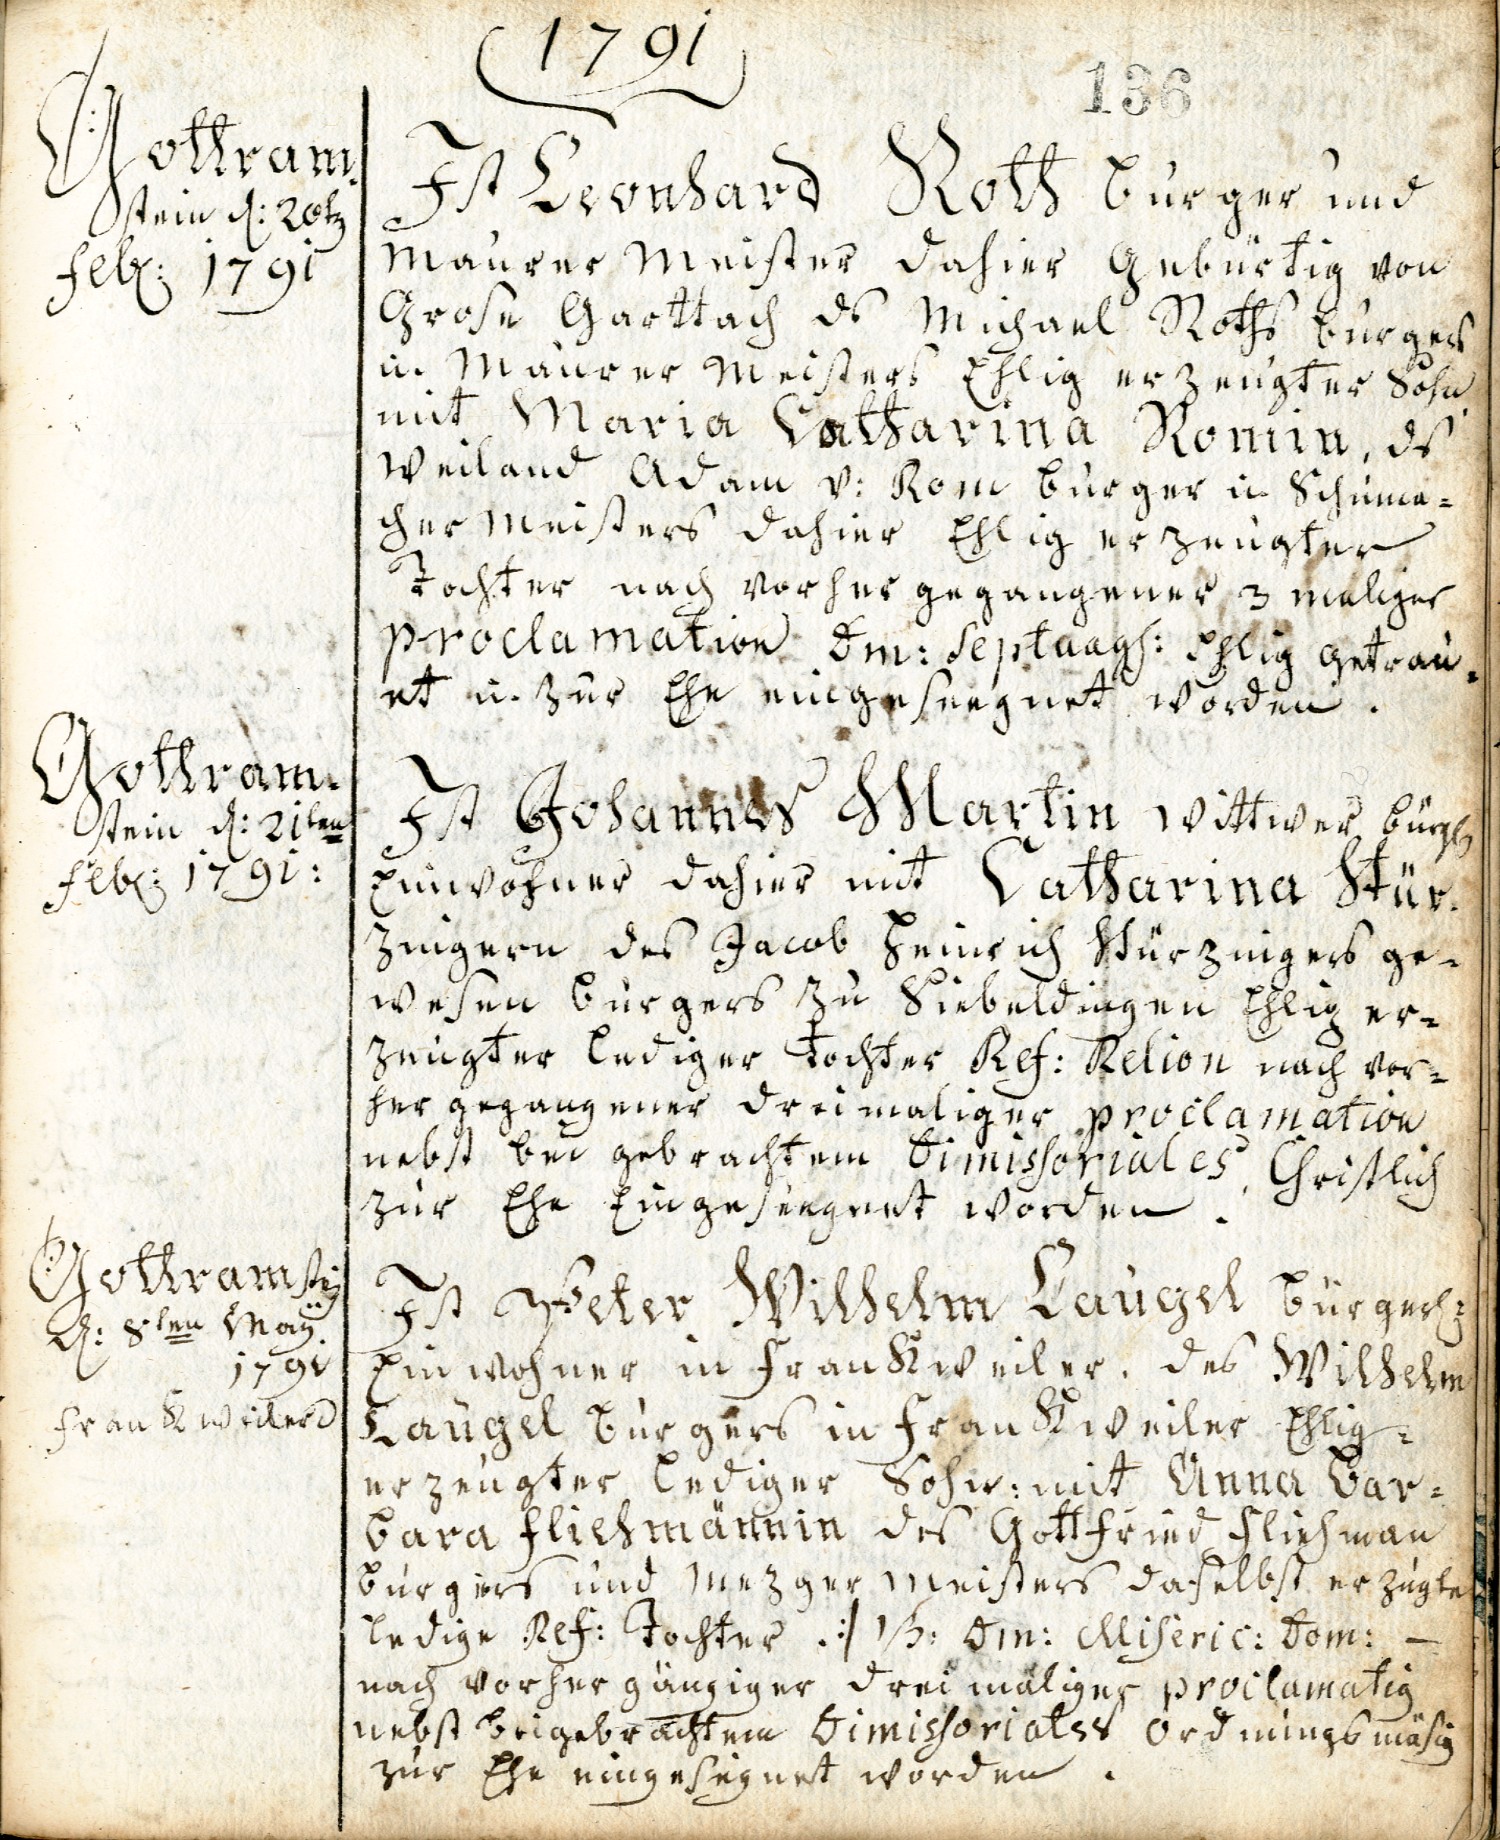 1791
136
Gottram-
stein d: 20t
febr: 1791
Ist Leonhard Roth burger und
Maurer Meister dahier gebürtig von
Grose Garttach ds Michael Roths burgers
u. Maurer Meisters Ehlig erzeugter Sohn
mit Maria Catharina Romin, ds
weiland Adam v: Rom burger u. Schuma-
cher Meisters dahier Ehlig erzeugter
Tochter nach vorhergegangener 3 maliger
proclamation Dm: Septuags: Ehlig getrau-
et u. zur Ehe eingeseegnet worden.
Gottram-
stein d: 21ten
febr: 1791:
Ist Johannes Martin wittwer bürgl
Einwohner dahier mit Catharina Stür-
zingern des Jacob Heinrich Stürzingers ge-
wesen burgers zu Siebeldingen Ehlig er-
zeugter lediger Tochter Ref: Relion nach vor-
hergegangener dreimaliger proclamation
nebst bei gebrachtem Dimissoriales Christlich
zur Ehe Eingeseegnet worden.
Gottramst
d: 8ten May
1791
Frankweiler
Ist Peter Wilhelm Laugel bürgerl:
Einwohner in Frankweiler. des Wilhelm
Laugel burgers in Frankweiler Ehlig-
erzeugter lediger Sohn: mit Anna Bar-
bara fliehmännin des Gottfried Fliehman
burgers und Mezger Meisters daselbst erzugte
ledige Ref: Tochter ./ Dm: Miseric: Dom: —
nach vorhergängiger dreimaliger proclamatio
nebst beigebrachtem Dimissoriales ordnungsmäsig
zur Ehe eingesegnet worden.